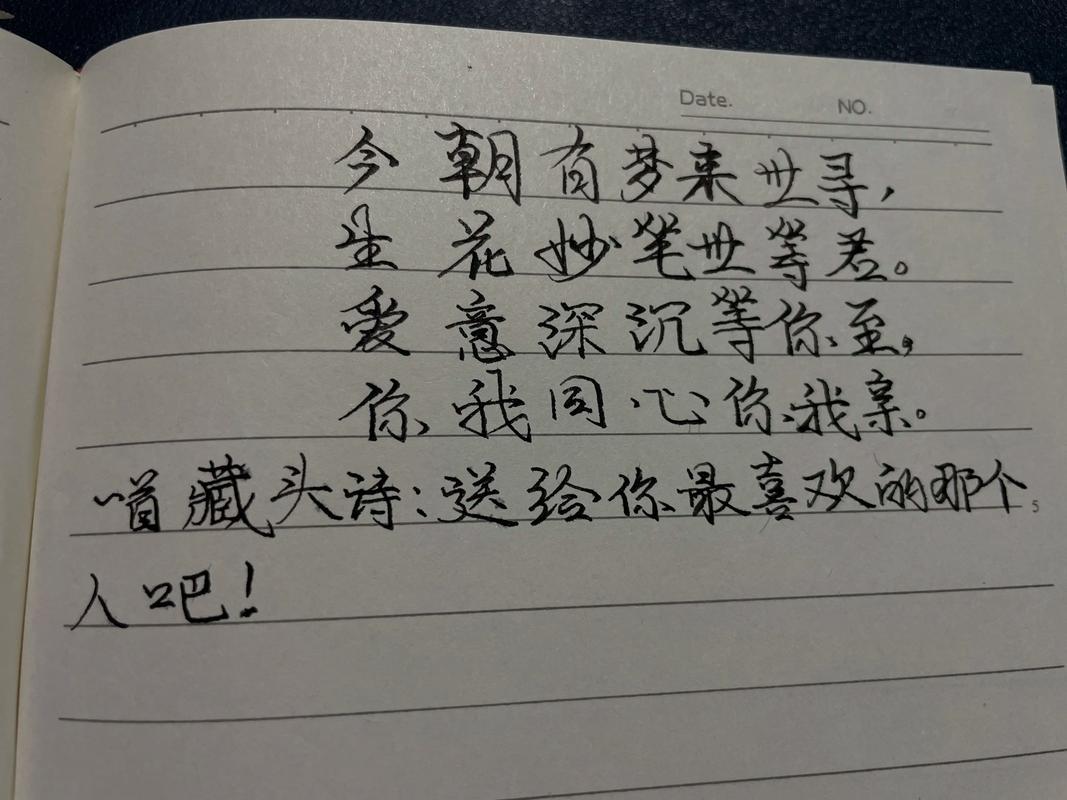 Date. NO.
今朝有梦来世寻，
生花妙笔世等君。
爱意深沉等你至，
你我同心你我亲。
首藏头诗：送给你最喜欢的那个
5
人吧！